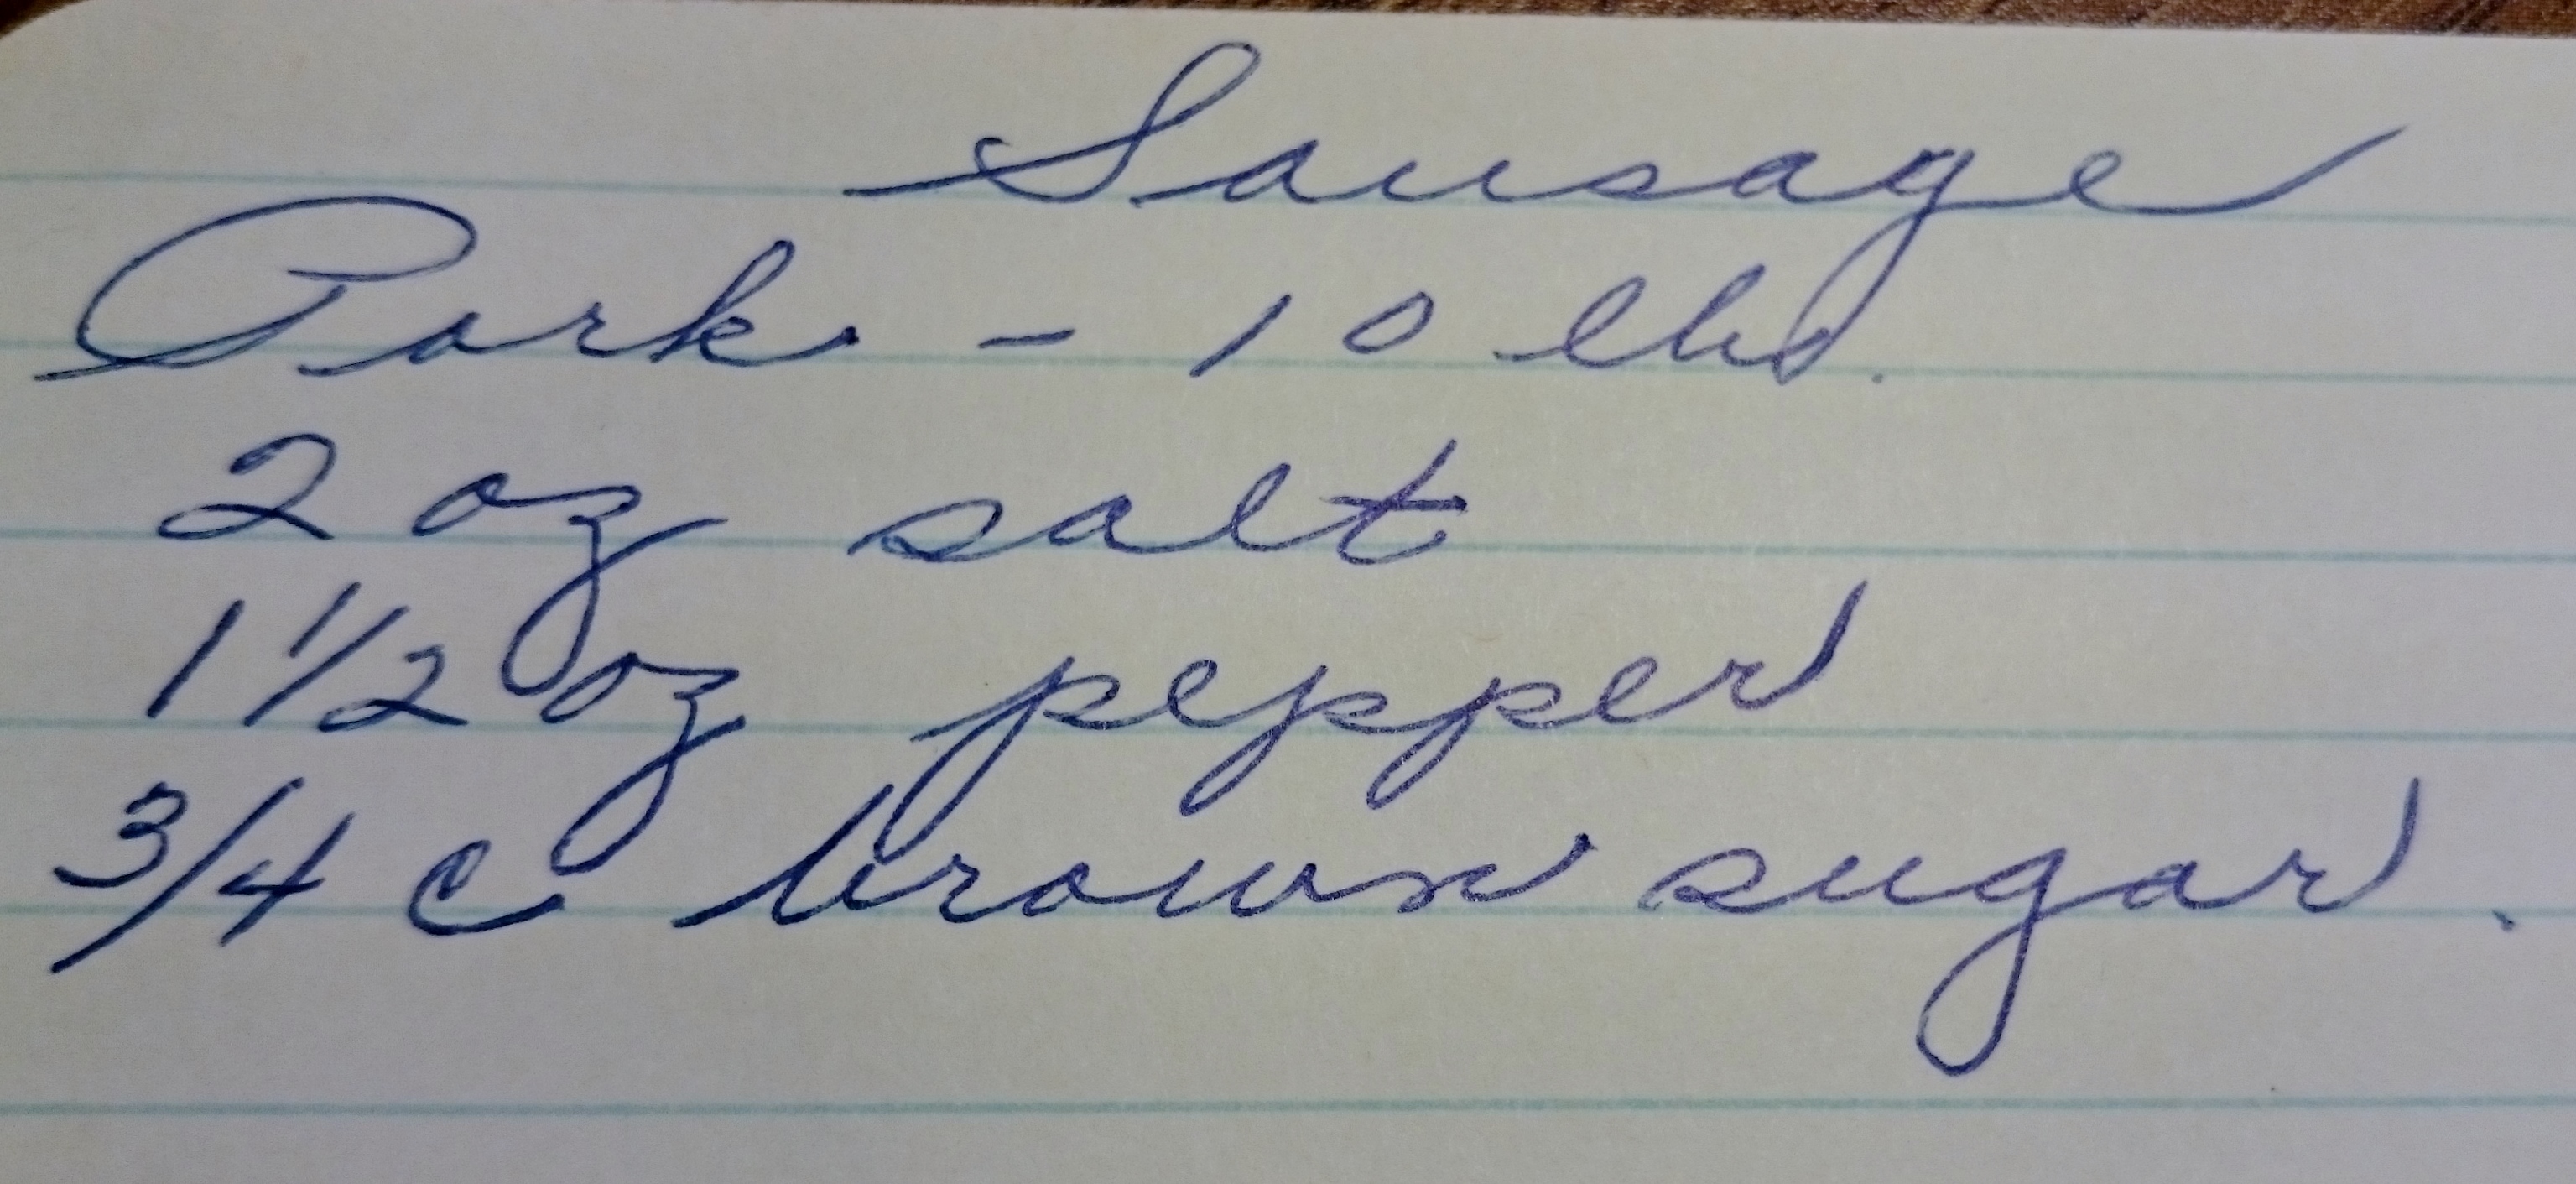 Sausage
Pork - 10 lbs.
2 oz salt
1 1/2 oz pepper
3/4 c brown sugar.